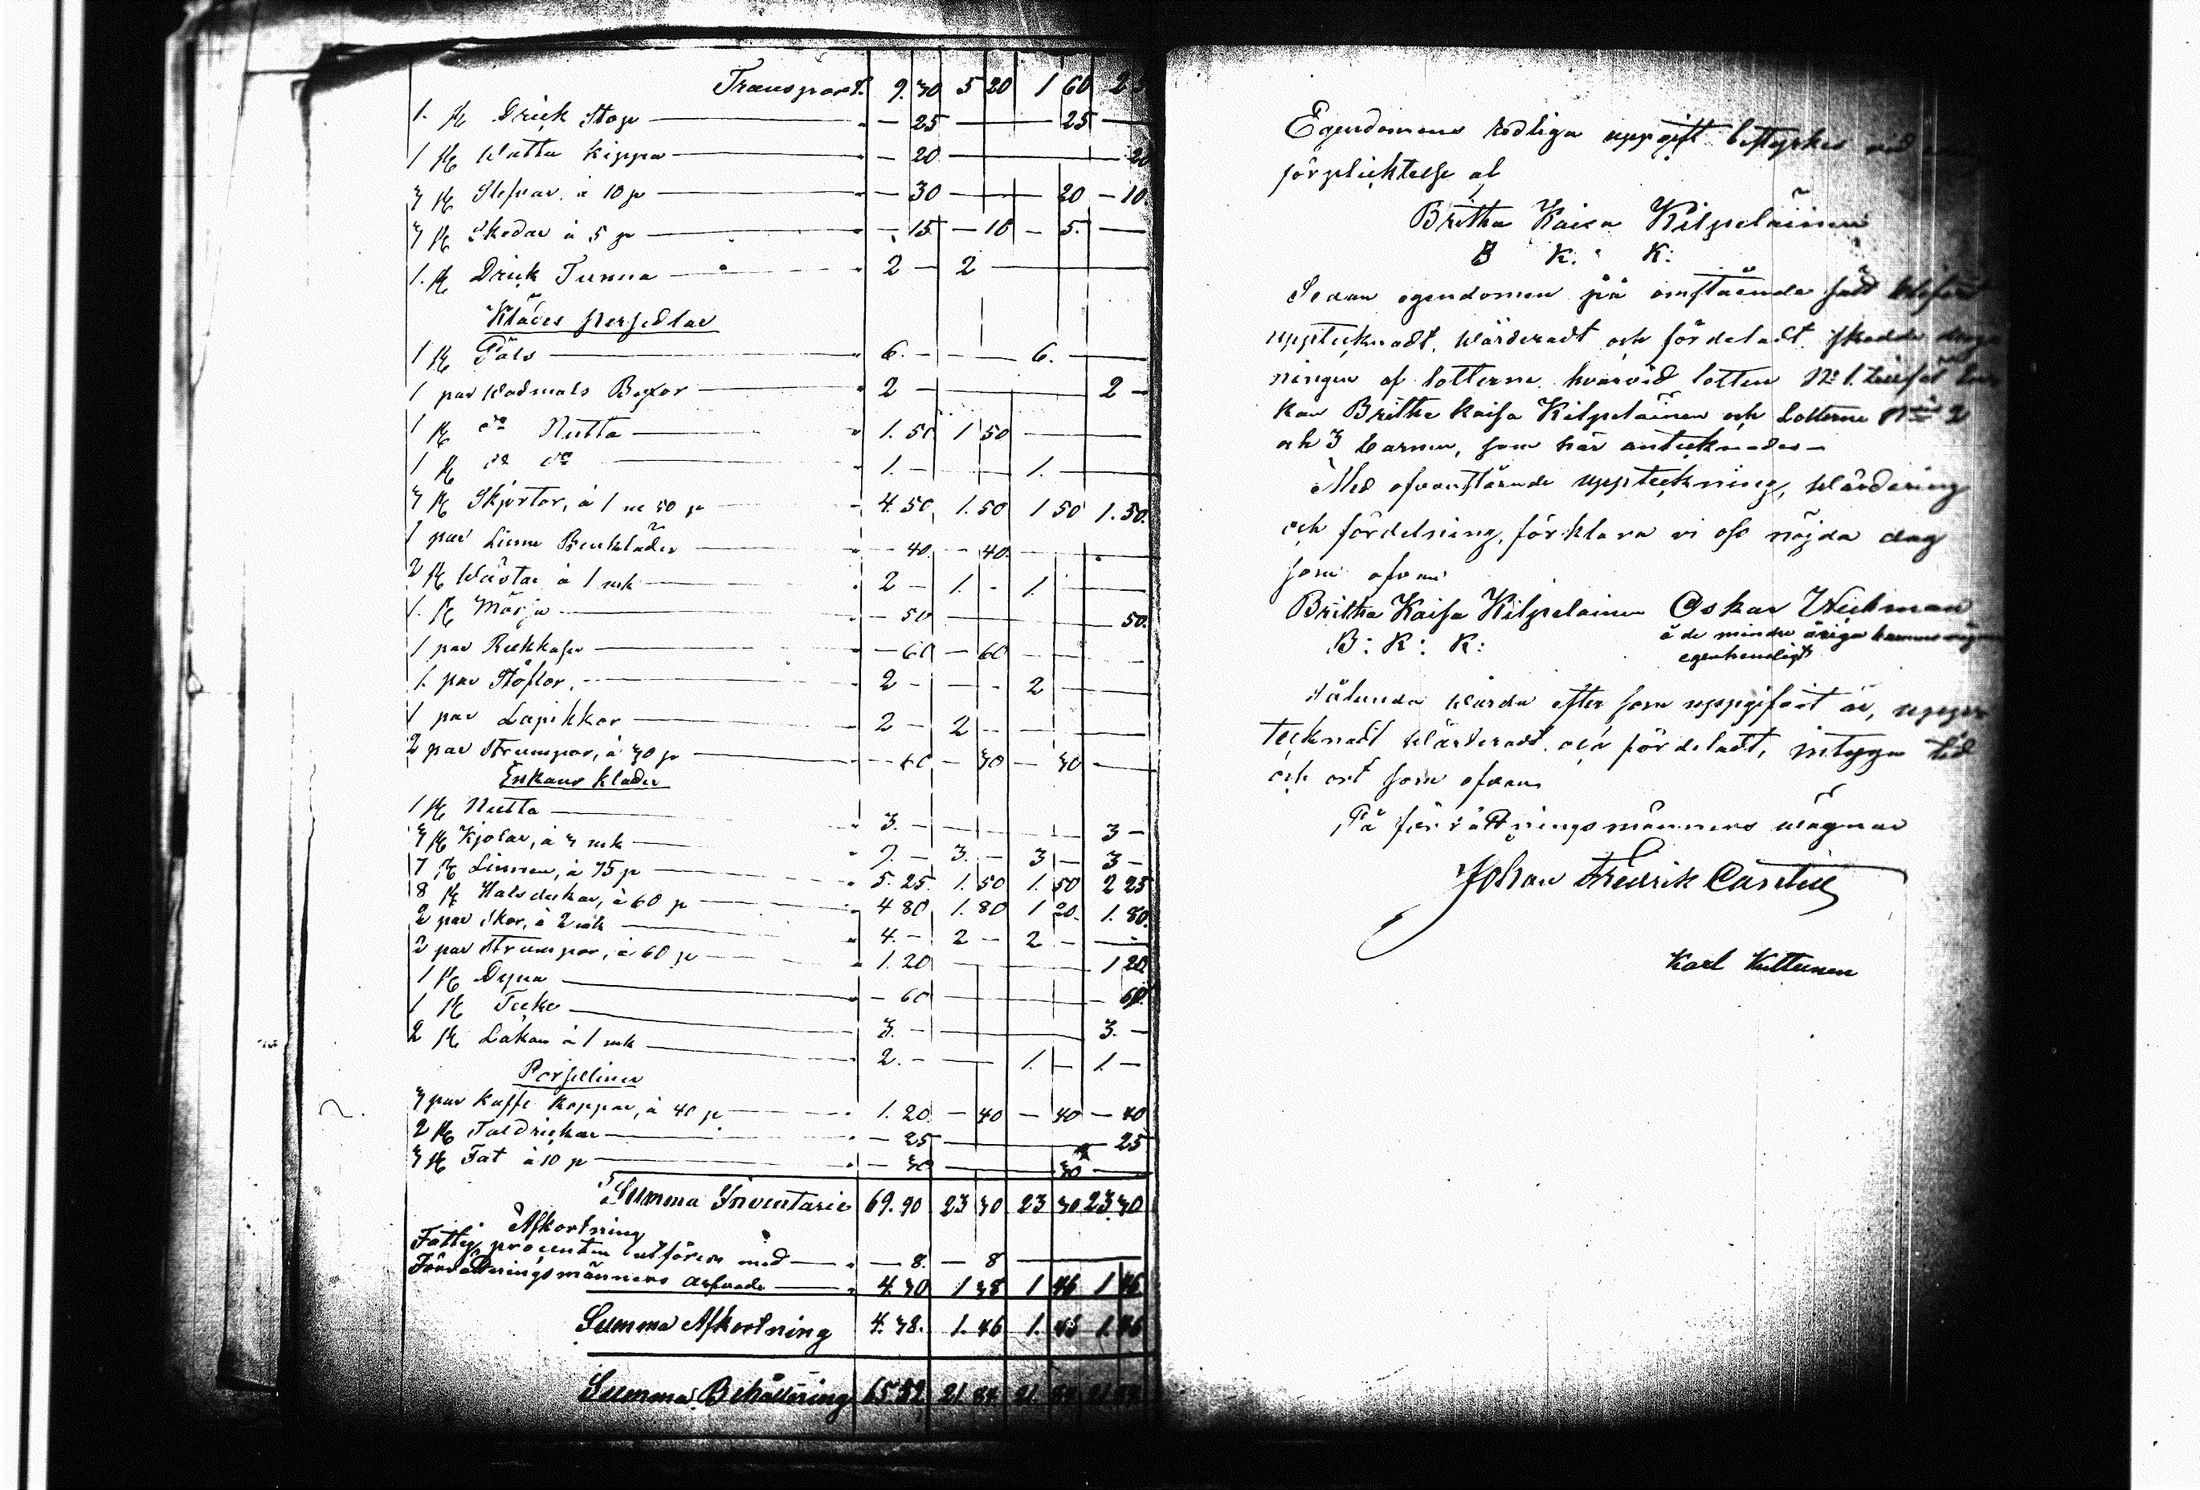 Transport. 9.30 5 20 1 60 2
1. st Drick Stop — 25 — 25 —
1 st Watta Kippa — 20 — 20
3 st Slefvar. á 10 p — 30 — 20 — 10.
3 st Skedar á 5 p — 15 — 10 — 5. —
1. st Drick Tunna — 2 — 2 —
Klädes persedlar
1 st Päls — 6. — 6. —
1 par Wadmals Byxor — 2 — 2 —
1 st do Nutta — 1. 50 1 50 —
1 st do do — 1. — 1. —
3 st Skjortor, á 1 m 50 p — 4. 50 1. 50 1 50 1. 50.
1 par Linne Benkläder — 40. — 40. —
2 st Wästar á 1 mk — 2 — 1. — 1. —
1. st — 50 — 50.
1 par — 60 — 60 —
1. par Stöflor. — 2 — 2 —
1 par Lapikkor — 2 — 2 —
2 par Strumpor, á 30 p — 60 — 30 — 30 —
Enkans kläder
1 st Nutta — 3. — 3 —
3 st Kjolar, á 3 mk — 9. — 3. — 3 — 3 —
7 st Linnen, á 75 p — 5. 25. 1. 50 1. 50 2 25
8 st Halsdukar, á 60 p — 4 80 1. 80 1 20. 1. 80.
2 par Skor, á 2 mk — 4. — 2 — 2 —
2 par Strumpor, á 60 p — 1. 20 — 1 20
1 st Dyna — 60 — 60.
1 st Täcke — 3. — 3. —
2 st Lakan á 1 mk — 2. — 1. — 1. —
Porseliner
3 par Kaffe Koppar, á 40 p — 1. 20. — 40 — 40 — 40
2 st Taldrickar — 25 — 25
3 st Fat á 10 p — 30 — 30 —
Summa Inventarie 69. 90 23 30 23 30 23. 30
Afkortning
Fattig procenten utföres med — 8. — 8 —
Förrättningsmännens arfvode — 4. 30 1 38 1 46 1 46
Summa Afkortning 4. 38. 1. 46 1. 46 1. 46
Summa Behållning 65. 52 21. 84. 21. 84 21. 84
Egendomens redliga uppgift bestyrkes vid
förpliktelse af
Britha Kaisa Kilpeläinen
B K. K:
Sedan egendomen på omstående sätt blifvit
upptecknadt, wärderadt och fördeladt skedde
ningen af lotterne hvarvid lotten No 1.
kan Britha Kaisa Kilpeläinen och Lotterne 2
och 3 barnen, som här antecknades —
Med ofvanstående uppteckning, wärdering
och fördelning, förklara vi oss nöjda dag
som ofvan
Britha Kaisa Kilpelainen Oskar Wickman
B: K: K: å de mindre åriga barnens vägnar
egenhendigt
Sålunda wårda efter som uppgifvit är, upp
tecknadt wärderadt och fördeladt, intyga tid
och ort som ofvan
På förrättningsmännens wägnar
Johan Fredrik Castrén
Karl Kuttunen